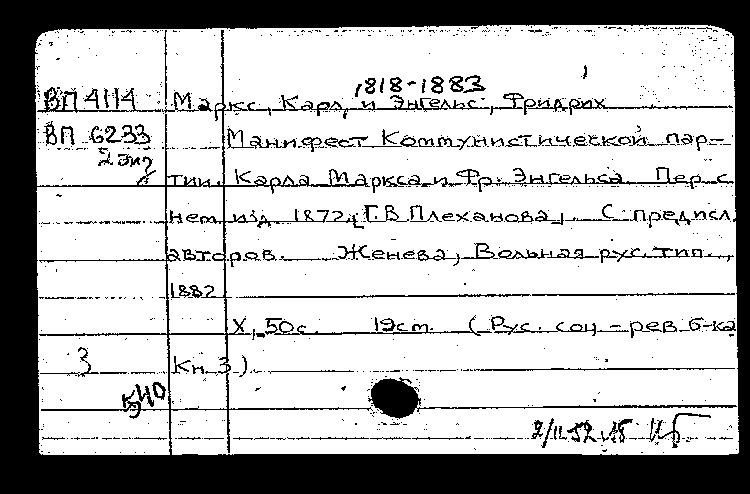 1818-1883
ВП 4114 Маркс, Карл, и Энгельс, Фридрих
ВП 6233 Манифест Коммунистической пар-
2 экз
тии Карла Маркса и Фр. Энгельса. Пер с
нем изд 1872 [Г.В Плеханова]. С предисл
авторов. Женева, Вольная рус. тип.,
1882
X, 50с. 19см. (Рус. соц-рев б-ка
3 Кн 3).
2/II 52